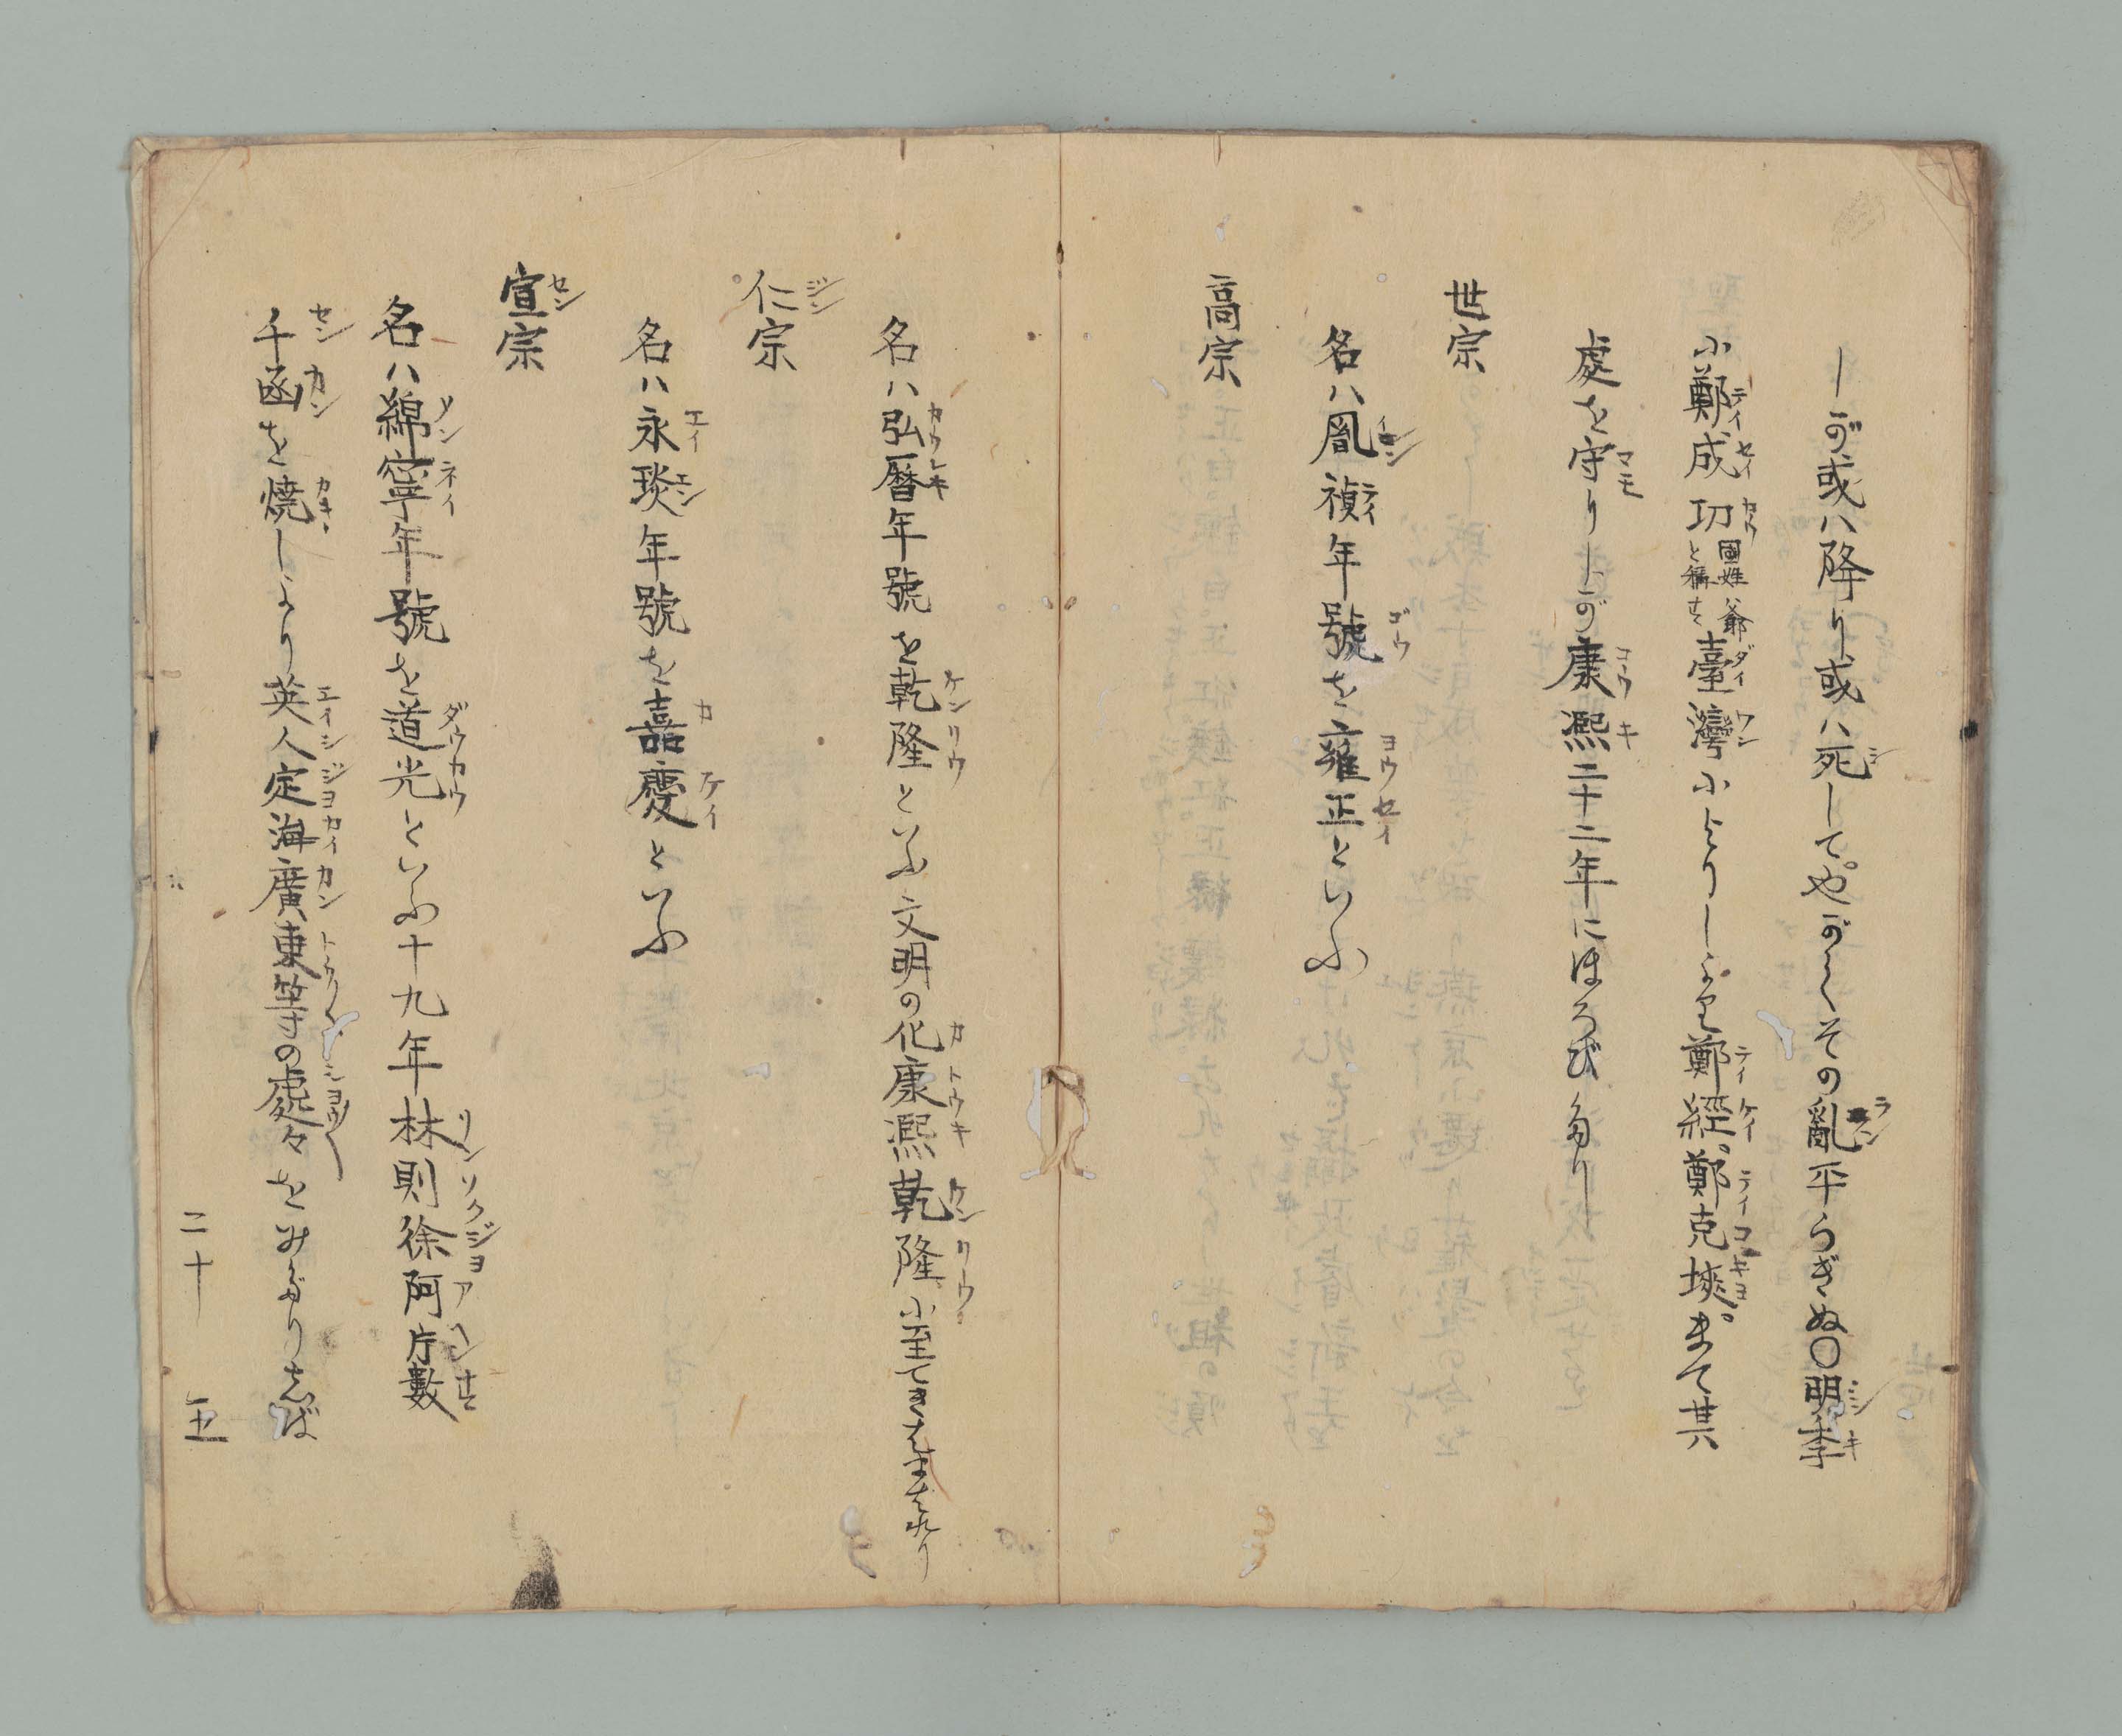 しが或ハ降り或ハ死して。やがてその亂平らぎぬ〇明季
小鄭成功國姓爺と稱す臺灣小よりしより鄭經。鄭克塽。まて其
處を守りしが康熙二十二年にほろびたり
世宗
名ハ胤禎年號を雍正といふ
高宗
名ハ弘暦年號を乾隆といふ文明の化康熙乾隆小至てきはまれり
仁宗
名ハ永琰年號を嘉慶といふ
宣宗
名ハ綿寧年號を道光といふ十九年林則徐阿片數
千函を焼しより英人定海廣東等の處々をみだりしば
二十